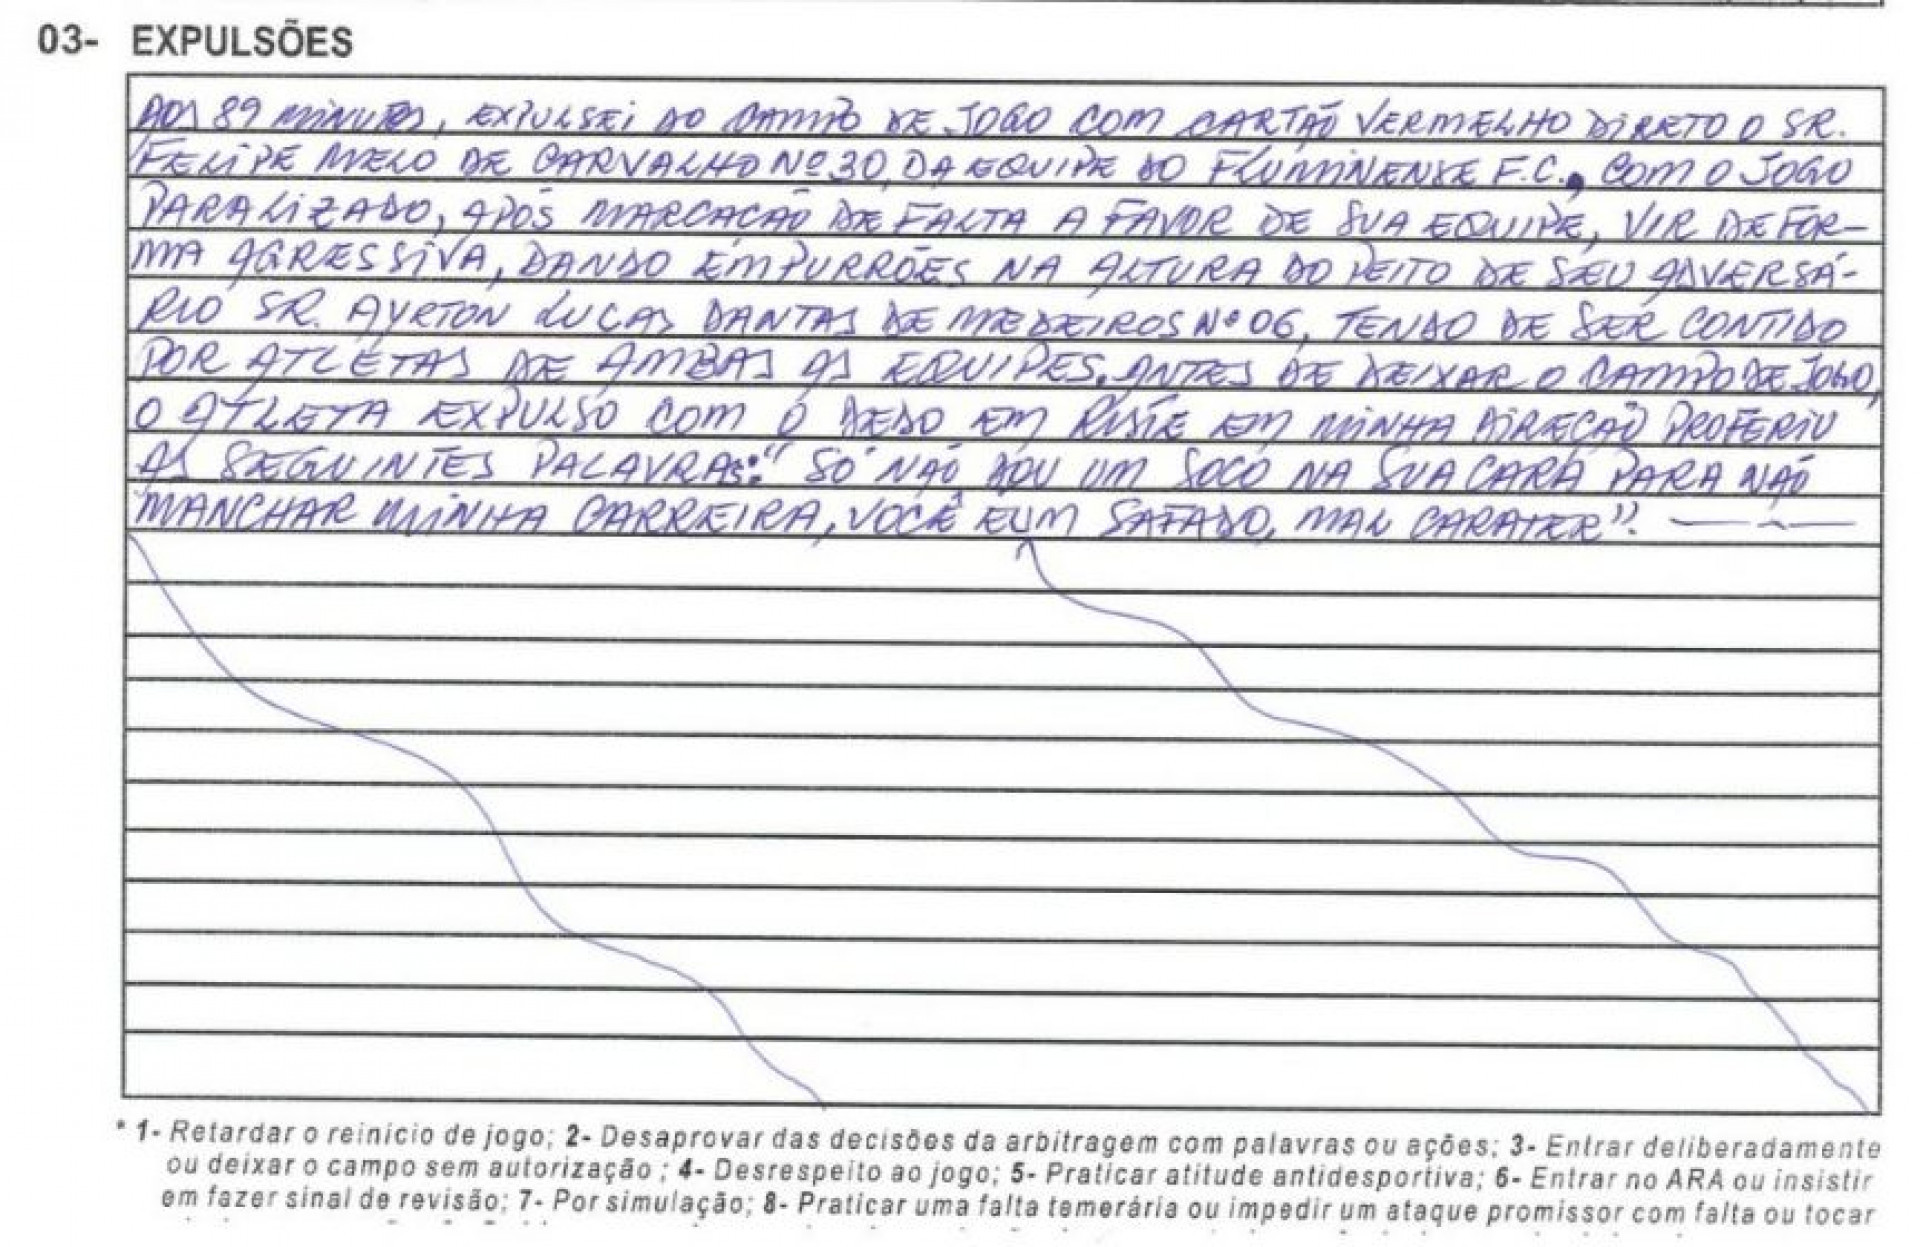 03- EXPULSÕES
AOS 89 MINUTOS, EXPULSEI DO CAMPO DE JOGO COM CARTÃO VERMELHO DIRETO O SR.
FELIPE MELO DE CARVALHO Nº 30, DA EQUIPE DO FLUMINENSE F.C., COM O JOGO
PARALIZADO, APÓS MARCAÇÃO DE FALTA A FAVOR DE SUA EQUIPE, VIR DE FOR-
MA AGRESSIVA, DANDO EMPURRÕES NA ALTURA DO PEITO DE SEU ADVERSÁ-
RIO SR. AYRTON LUCAS DANTAS DE MEDEIROS Nº 06, TENDO DE SER CONTIDO
POR ATLETAS DE AMBAS AS EQUIPES. ANTES DE DEIXAR O CAMPO DE JOGO,
O ATLETA EXPULSO COM O DEDO EM RISTE EM MINHA DIREÇÃO PROFERIU
AS SEGUINTES PALAVRAS: "SÓ NÃO DOU UM SOCO NA SUA CARA PARA NÃO
MANCHAR MINHA CARREIRA, VOCÊ E UM SAFADO, MAU CARATER".
* 1- Retardar o reinício de jogo; 2- Desaprovar das decisões da arbitragem com palavras ou ações; 3- Entrar deliberadamente
ou deixar o campo sem autorização ; 4- Desrespeito ao jogo; 5- Praticar atitude antidesportiva; 6- Entrar no ARA ou insistir
em fazer sinal de revisão; 7- Por simulação; 8- Praticar uma falta temerária ou impedir um ataque promissor com falta ou tocar